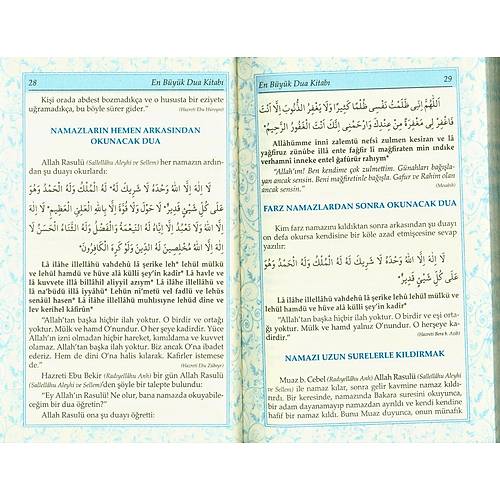 28 En Büyük Dua Kitabı
Kişi orada abdest bozmadıkça ve o hususta bir eziyete
uğramadıkça, bu böyle sürer gider." (Hazreti Ebu Hüreyre)
NAMAZLARIN HEMEN ARKASINDAN
OKUNACAK DUA
Allah Rasulü (Sallellâhu Aleyhi ve Sellem) her namazın ardın-
dan şu duayı okurlardı:
لَا اِلٰهَ اِلَّا اللهُ وَحْدَهُ لَا شَرِيكَ لَهُ، لَهُ الْمُلْكُ وَلَهُ الْحَمْدُ وَهُوَ
عَلٰى كُلِّ شَيْئٍ قَدِيرٌ، لَا حَوْلَ وَلَا قُوَّةَ اِلَّا بِاللهِ الْعَلِيِّ الْعَظِيمِ، لَا اِلٰهَ
اِلَّا اللهُ وَلَا نَعْبُدُ اِلَّا اِيَّاهُ لَهُ النِّعْمَةُ وَلَهُ الْفَضْلُ وَلَهُ الثَّنَاءُ الْحَسَنُ لَا
اِلٰهَ اِلَّا اللهُ مُخْلِصِينَ لَهُ الدِّينَ وَلَوْ كَرِهَ الْكَافِرُونَ.
Lâ ilâhe illellâhü vahdehü lâ şerîke leh* lehül mülkü
ve lehül hamdü ve hüve alâ külli şey'in kadir* Lâ havle ve
lâ kuvvete illâ billâhil aliyyil azıym* Lâ ilâhe illellâhü ve
lâ na'büdü illâ iyyâhü* Lehün ni'metü vel fadlü ve lehüs
senâül hasen* Lâ ilâhe illellâhü muhlısıyne lehüd dine ve
lev kerihel kâfirûn*
"Allah'tan başka hiçbir ilah yoktur. O birdir ve ortağı
yoktur. Mülk ve hamd O'nundur. O her şeye kadirdir. Yüce
Allah'ın izni olmadan hiçbir hareket, kımıldama ve kuvvet
olamaz. Allah'tan başka ilah yoktur. Biz ancak O'na ibadet
ederiz. Hem de dini O'na halis kılarak. Kafirler istemese
de." (Hazreti Ebu Zübeyr)
Hazreti Ebu Bekir (Radıyellâhu Anh) bir gün Allah Rasulü
(Sallellâhu Aleyhi ve Sellem)'den şöyle bir talepte bulundu:
"Ey Allah'ın Rasulü! Ne olur, bana namazda okuyabile-
ceğim bir dua öğretin?"
Allah Rasulü ona şu duayı öğretti:
En Büyük Dua Kitabı 29
اَللّٰهُمَّ اِنِّى ظَلَمْتُ نَفْسِى ظُلْمًا كَثِيرًا وَلَا يَغْفِرُ الذُّنُوبَ اِلَّا اَنْتَ
فَاغْفِرْ لِى مَغْفِرَةً مِنْ عِنْدِكَ وَارْحَمْنِى اِنَّكَ اَنْتَ الْغَفُورُ الرَّحِيمُ.
Allâhümme inni zalemtü nefsi zulmen kesiran ve lâ
yağfiruz zünûbe illâ ente fağfir li mağfiraten min ındike
verhamni inneke entel ğafûrür rahıym*
"Allah'ım! Ben kendime çok zulmettim. Günahları bağışla-
yan ancak sensin. Beni mağfiretinle bağışla. Gafur ve Rahim olan
ancak sensin." (Mesabih)
FARZ NAMAZLARDAN SONRA OKUNACAK DUA
Kim farz namazını kıldıktan sonra arkasından şu duayı
on defa okursa kendisine bir köle azad etmişçesine sevap
yazılır:
لَا اِلٰهَ اِلَّا اللهُ وَحْدَهُ لَا شَرِيكَ لَهُ لَهُ الْمُلْكُ وَلَهُ الْحَمْدُ وَهُوَ
عَلٰى كُلِّ شَيْئٍ قَدِيرٌ.
Lâ ilâhe illellâhü vahdehü lâ şerike lehü lehül mülkü
ve lehül hamdü ve hüve alâ külli şey'in kadir*
"Allah'tan başka hiçbir ilah yoktur. O birdir ve eşi-ortağı
yoktur. Mülk ve hamd yalnız O'nundur. O herşeye ka-
dirdir." (Hazreti Bera b. Azib)
NAMAZI UZUN SURELERLE KILDIRMAK
Muaz b. Cebel (Radıyellâhu Anh) Allah Rasulü (Sallellâhu
Aleyhi ve Sellem) ile namaz kılar, sonra gelir kavmine namaz kıldı-
rırdı. Bir keresinde, namazında Bakara suresini okuyunca,
bir adam dayanamayıp namazdan ayrıldı ve kendi kendine
hafif bir namaz kıldı. Bunu Muaz duyunca, onun münafık